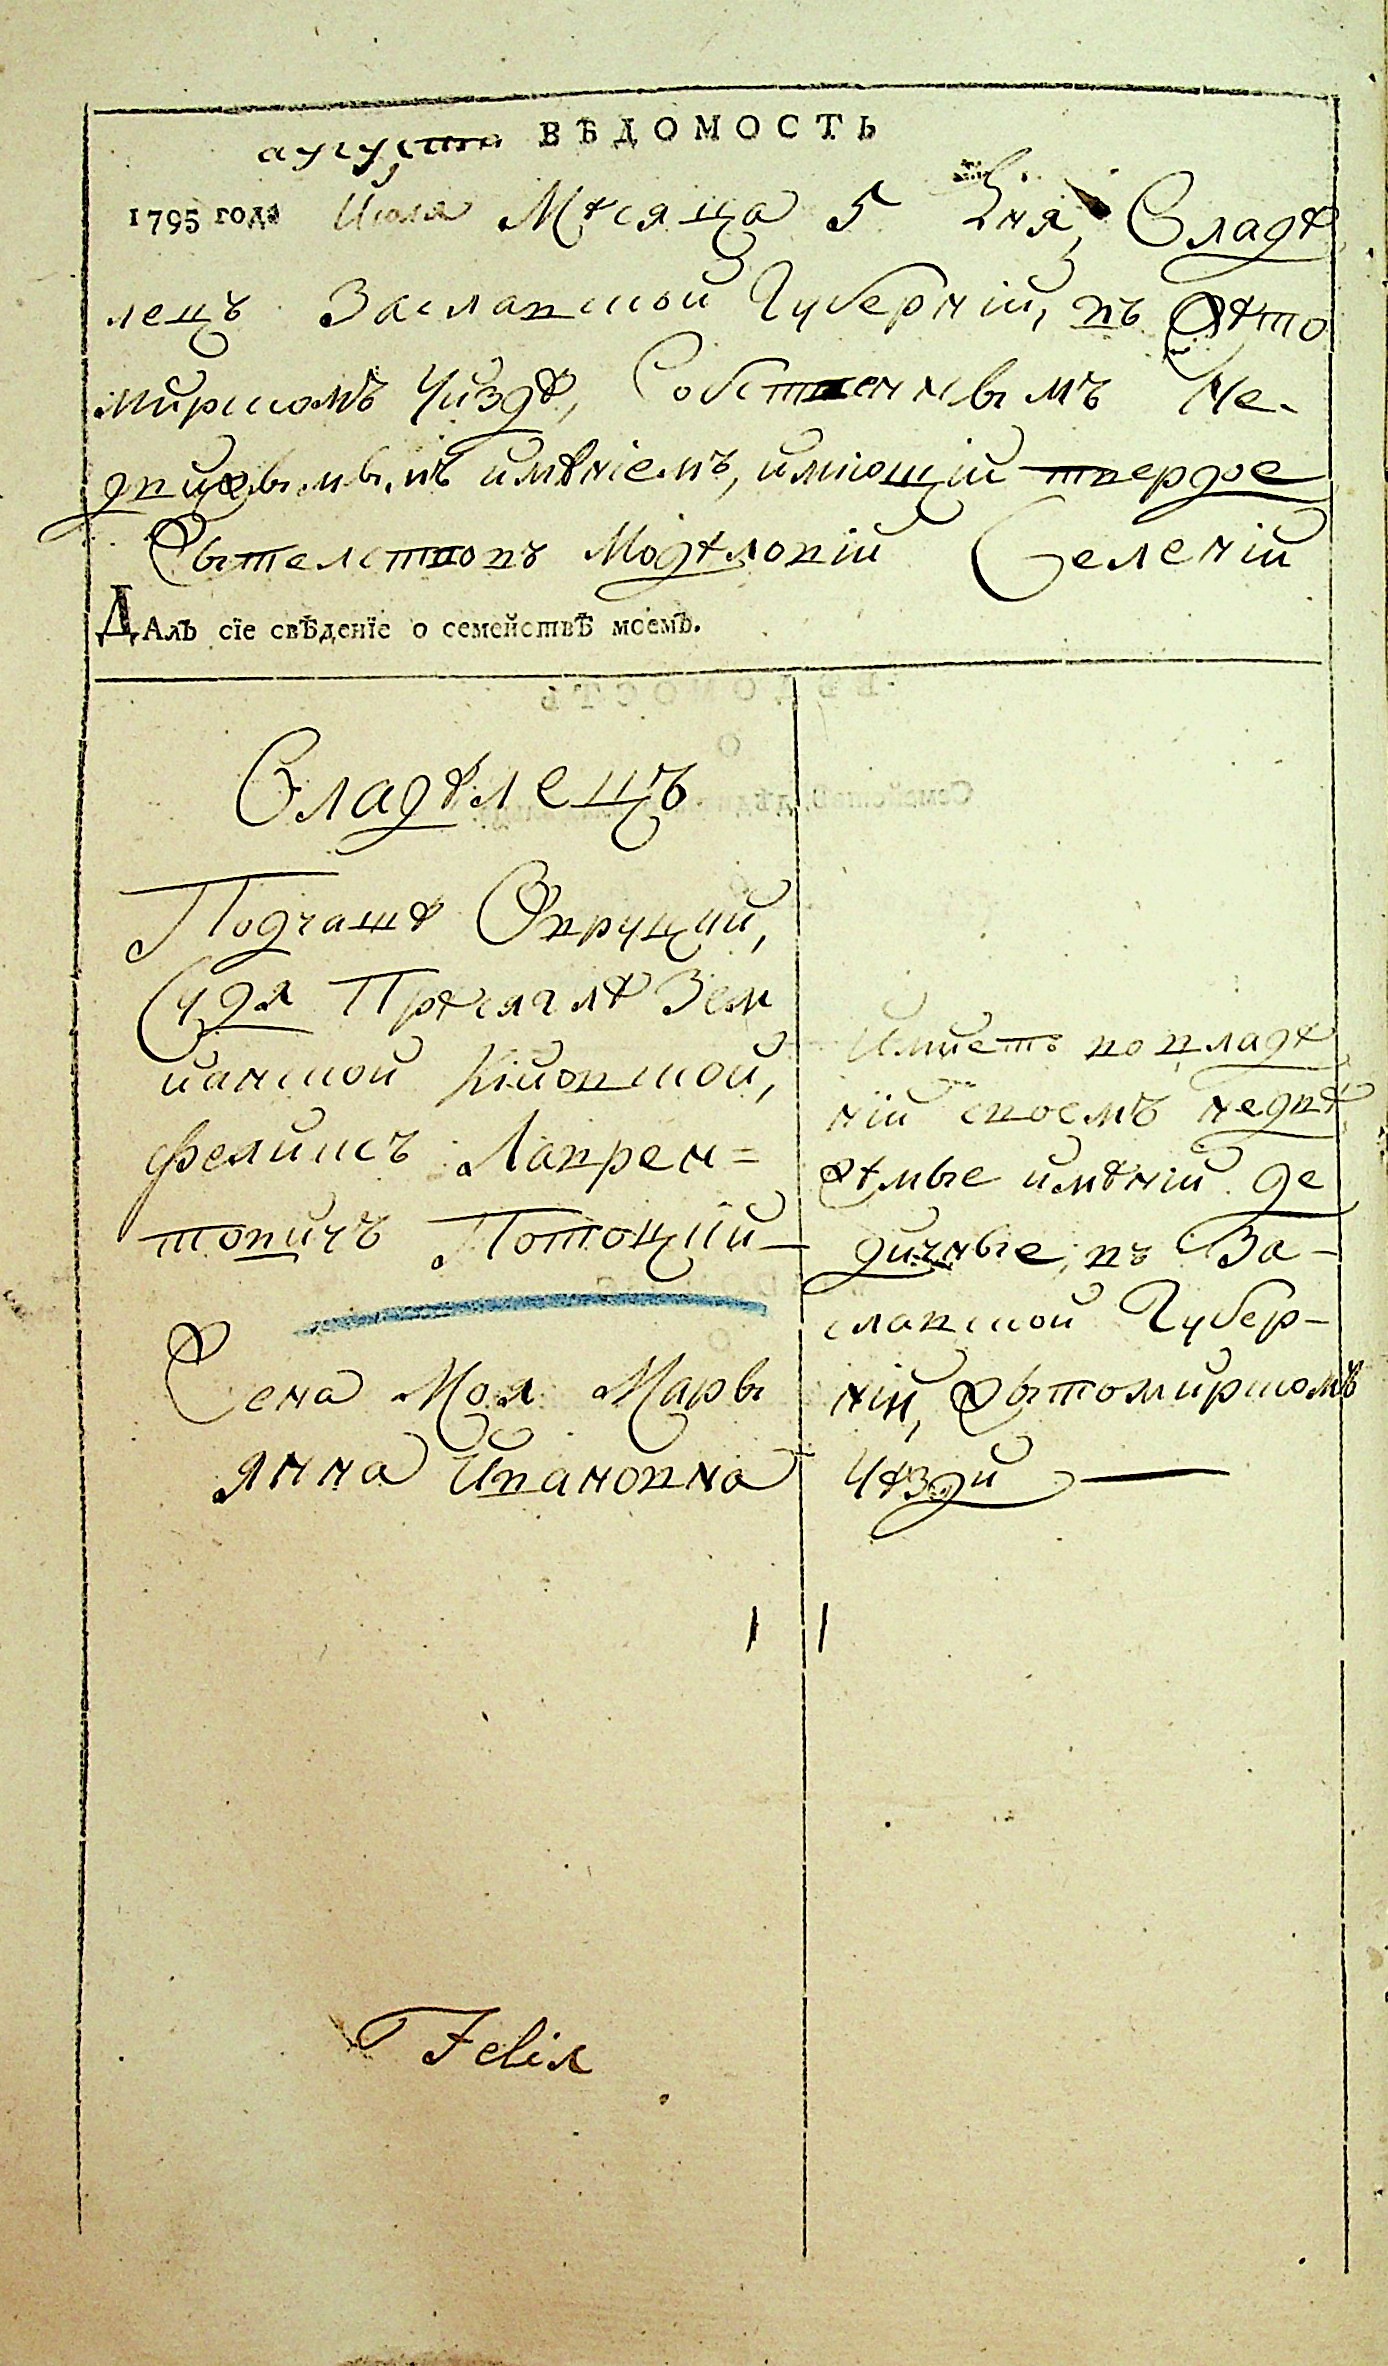 ВѢДОМОСТЬ
августа
1795 года Июля Мѣсяца 5 Дня, Владѣ
лецъ Заславской Губерніи, въ Жѣто
мирскомъ Уиздѣ, Собственнымъ Не-
движымымъ имѣніемъ, имиющій твердое
Жытелствовъ Модѣловкій Селеній
ДАлъ сїе свѣденїе о семействѣ моемъ.
Владѣлецъ
Подчашѣ Овруцкій,
Судя Прѣсяглѣ Зем
йанской Кійовской,
Феликсъ Лаврен=
товичъ Потоцкій
Жена Моя Мары
янна Ивановна
Имиетъ во владѣ
ній своемъ недви
жѣмые имѣній де
дичные, въ За-
славской Губер-
ній, Жытомирскомъ
Уѣзди
1 1
Felix